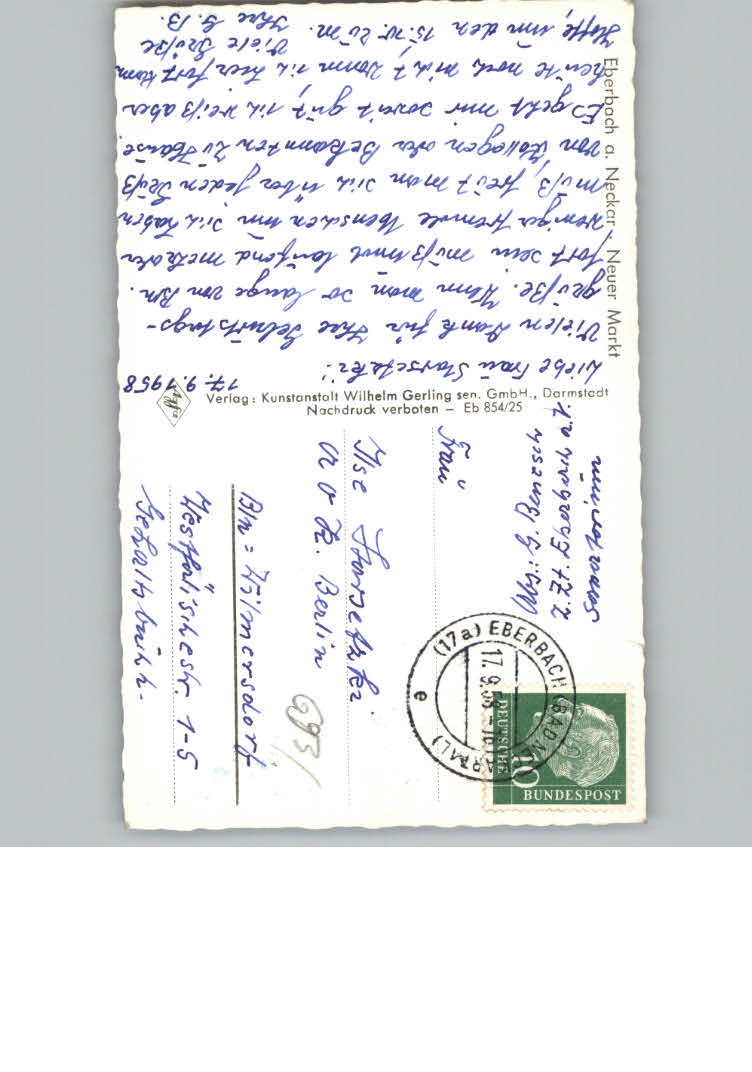 17.9.1958
Liebe Frau Starsetzki!
Vielen Dank für Ihre Geburtstags-
grüße. Wenn man so lange von Bln.
fort sein muß und laufend mehr oder
weniger fremde Menschen um sich haben
muß, freut man sich über jeden Gruß
von Kollegen oder Bekannten zu Hause.
Es geht mir soweit gut, ich weiß aber
heute noch nicht wann ich hier fort kann
Hoffe, um den 15. rum.
Viele Grüße
Ihre G. B.
Eberbach a. Neckar · Neuer Markt
Verlag: Kunstanstalt Wilhelm Gerling sen. GmbH., Darmstadt
Nachdruck verboten – Eb 854/25
Agfa
Abs. G.
z. Zt. Eberbach a.
Sanatorium
Frau
Ilse Starsetzki
Berlin
Bln = Wilmersdorf
Westfälischestr. 1-5
Gehaltsbuchh.
693/
(17a) EBERBACH (BADEN)
17.9.58
e
DEUTSCHE
BUNDESPOST
10